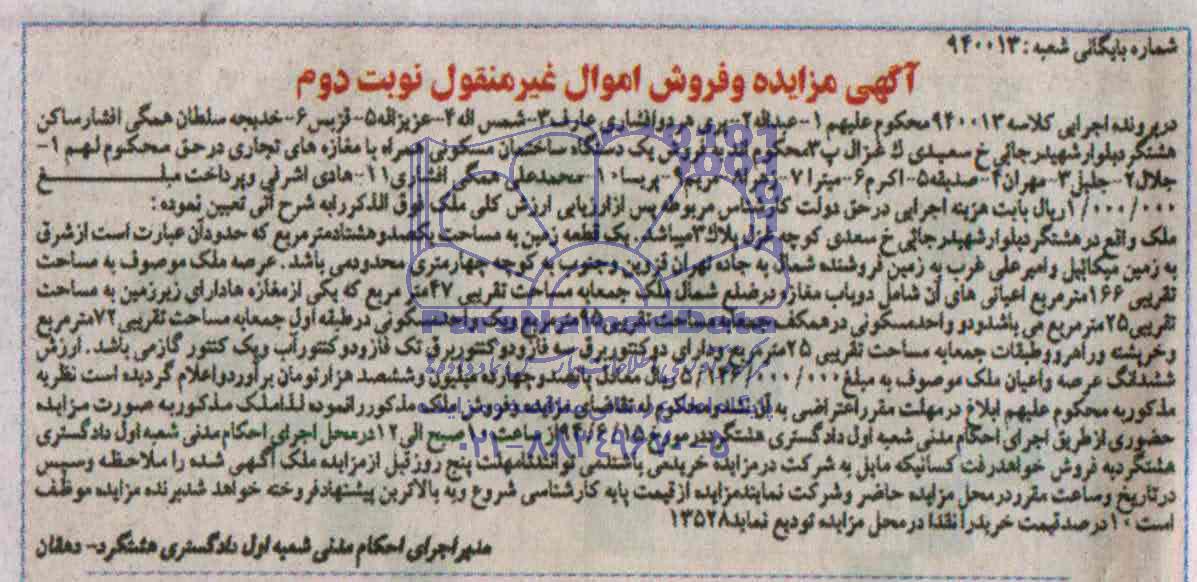 شماره بایگانی شعبه : ۹۴۰۰۱۳
آگهی مزایده وفروش اموال غیرمنقول نوبت دوم
درپرونده اجرایی کلاسه ۹۴۰۰۱۳ محکوم علیهم ۱-عبداله۲-پری هردوافشاری عارف۳-شمس اله۴-عزیزاله۵-قزبس۶-خدیجه سلطان همگی افشارساکن
هشتگردبلوارشهیدرجائی خ سعیدی ک غزال پ۳محکوم اندبه فروش یک دستگاه ساختمان مسکونی همراه با مغازه های تجاری درحق محکوم لهم ۱-
جلال۲-جلیل۳-مهران۴-صدیقه۵-اکرم۶-میترا۷-زهرا۸-مریم۹-پریسا۱۰-محمدعلی همگی افشاری۱۱-هادی اشرفی وپرداخت مبلغ
۱/۰۰۰/۰۰۰ریال بابت هزینه اجرایی درحق دولت کارشناس مربوطه پس ازارزیابی ارزش کلی ملک فوق الذکررابه شرح آتی تعیین نموده :
ملک واقع درهشتگردبلوارشهیدرجائی خ سعدی کوچه غزل پلاک۳میباشد. یک قطعه زمین به مساحت یکصدوهشتادمترمربع که حدودآن عبارت است ازشرق
به زمین میکائیل وامیرعلی غرب به زمین فروشنده شمال به جاده تهران قزوین وجنوب به کوچه چهارمتری محدودمی باشد. عرصه ملک موصوف به مساحت
تقریبی ۱۶۶مترمربع اعیانی های آن شامل دوباب مغازه درضلع شمال ملک جمعابه مساحت تقریبی ۴۷متر مربع که یکی ازمغازه هادارای زیرزمین به مساحت
تقریبی۲۵مترمربع می باشدودو واحدمسکونی درهمکف جمعابه مساحت تقریبی۹۵مترمربع ویک واحدمسکونی درطبقه اول جمعابه مساحت تقریبی۷۲مترمربع
وخرپشته وراهرووطبقات جمعابه مساحت تقریبی ۲۵مترمربع ودارای دوکنتوربرق سه فازودوکنتوربرق تک فازودوکنتورآب ویک کنتور گازمی باشد. ارزش
ششدانگ عرصه واعیان ملک موصوف به مبلغ۵/۱۴۶/۰۰۰/۰۰۰ریال معادل پانصدوچهارده میلیون وششصد هزارتومان برآوردواعلام گردیده است نظریه
مذکوربه محکوم علیهم ابلاغ درمهلت مقرراعتراضی به آن نشده محکوم له تقاضای مزایده وفروش ملک مذکوررانموده لذاملک مذکوربه صورت مزایده
حضوری ازطریق اجرای احکام مدنی شعبه اول دادگستری هشتگرددرمورخ ۹۴/۶/۱۵ازساعت ۱۰صبح الی۱۲درمحل اجرای احکام مدنی شعبه اول دادگستری
هشتگردبه فروش خواهدرفت کسانیکه مایل به شرکت درمزایده خریدمی باشندمی توانندتامهلت پنج روزقبل ازمزایده ملک آگهی شده را ملاحظه وسپس
درتاریخ وساعت مقرردرمحل مزایده حاضر وشرکت نمایندمزایده ازقیمت پایه کارشناسی شروع وبه بالاترین پیشنهادفروخته خواهد شدبرنده مزایده موظف
است ۱۰درصدقیمت خریدرا نقدا درمحل مزایده تودیع نماید۱۳۵۲۸
مدیراجرای احکام مدنی شعبه اول دادگستری هشتگرد- دهقان
ParsNamadData
۰۲۱-۸۸۳۴۹۶۷۰-۵